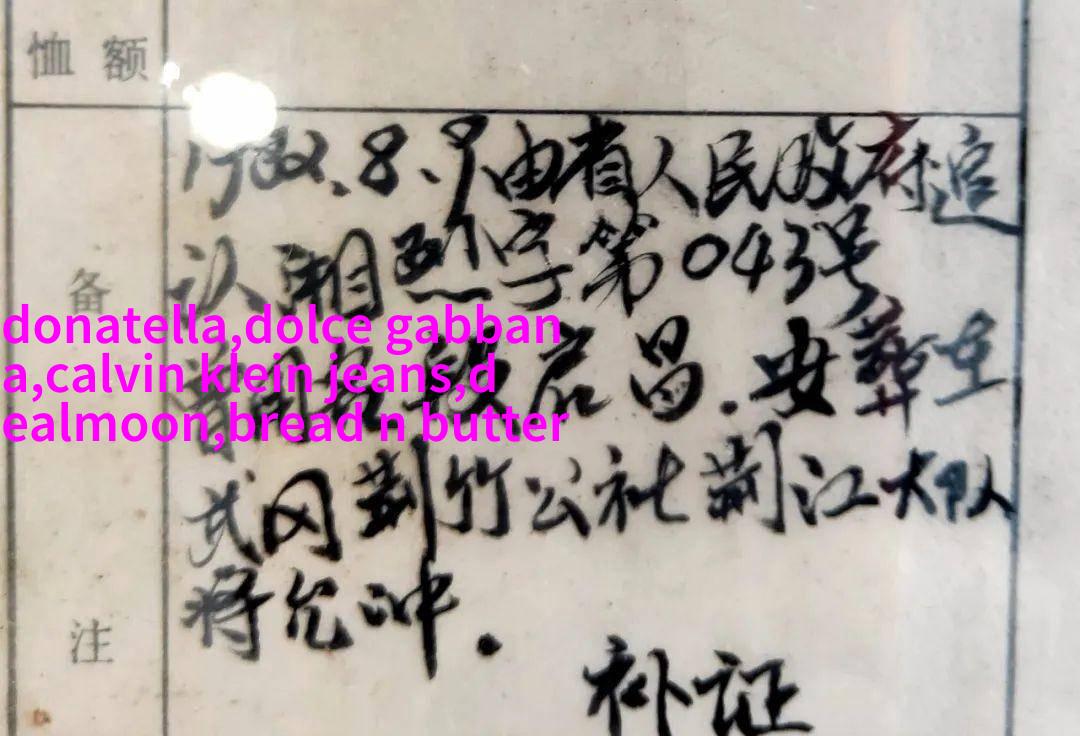 恤额
1982.8.9由省人民政府追
认湘烈字第043号
备
donatella,dolce gabban
a,calvin klein jeans,d
ealmoon,bread n butter
曾用名 启昌.安葬在
武冈荆竹公社荆江大队
蒋允冲.
注
补证